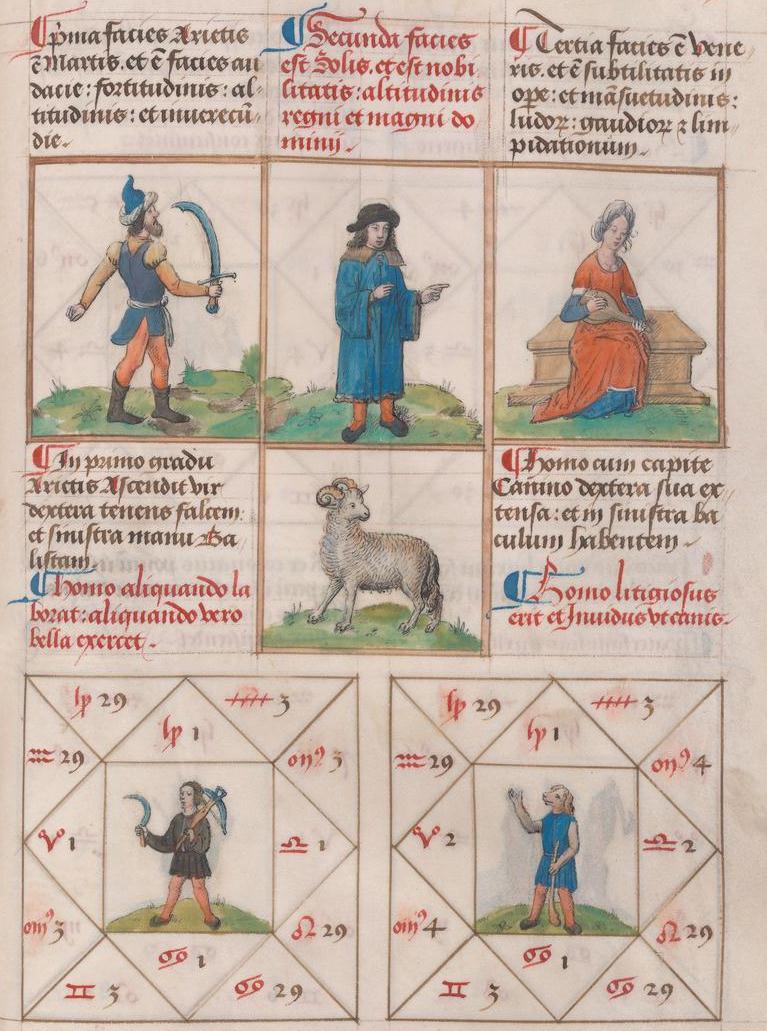 ¶ P̄ma facies Arietis
ē Martis. et ē facies au
dacie: fortitudinis: al-
titudinis: et inverecū-
die.
¶ Secunda facies
est Solis. et est nobi
litatis: altitudinis
regni et magni do
minij.
¶ Tertia facies ē Vene
ris. et ē subtilitatis in
ope: et māsuetudinis:
ludoꝝ: gaudioꝝ ⁊ lim
pidationum.
¶ In primo gradu
Arietis Ascendit vir
dextera tenens falcem:
et sinistra manu Ba
listam.
¶ Homo aliquando la
borat: aliquando vero
bella exercet.
¶ Homo cum capite
Canino dextera sua ex-
tensa: et in sinistra ba
culum habentem.
¶ Homo litigiosus
erit et Invidus vt canis.
♑ 29
3
♑ 1
♒ 29
3
♈ 1
♎ 1
3
♌ 29
♋ 1
♊ 3
♋ 29
♑ 29
3
♑ 1
♒ 29
4
♈ 2
♎ 2
4
♌ 29
♋ 1
♊ 3
♋ 29